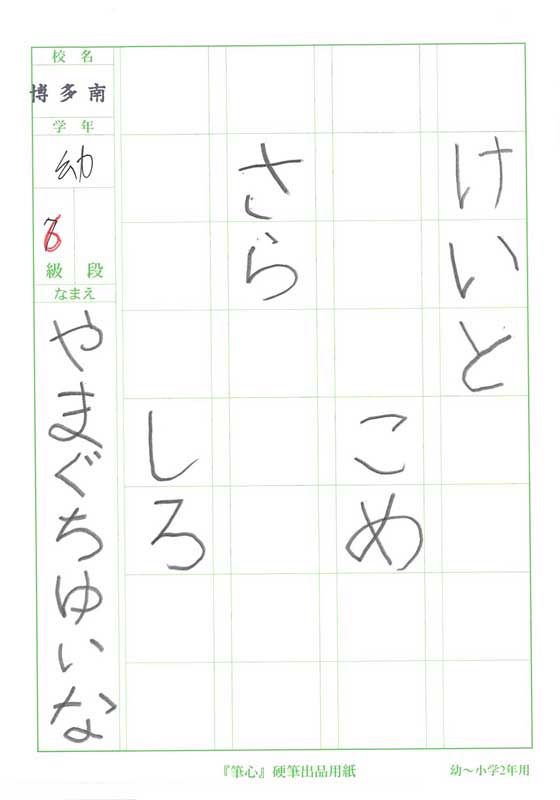 けいと
こめ
さら
しろ
校名
博多南
学年
幼
6
級 段
なまえ
やまぐちゆいな
『筆心』硬筆出品用紙
幼～小学2年用